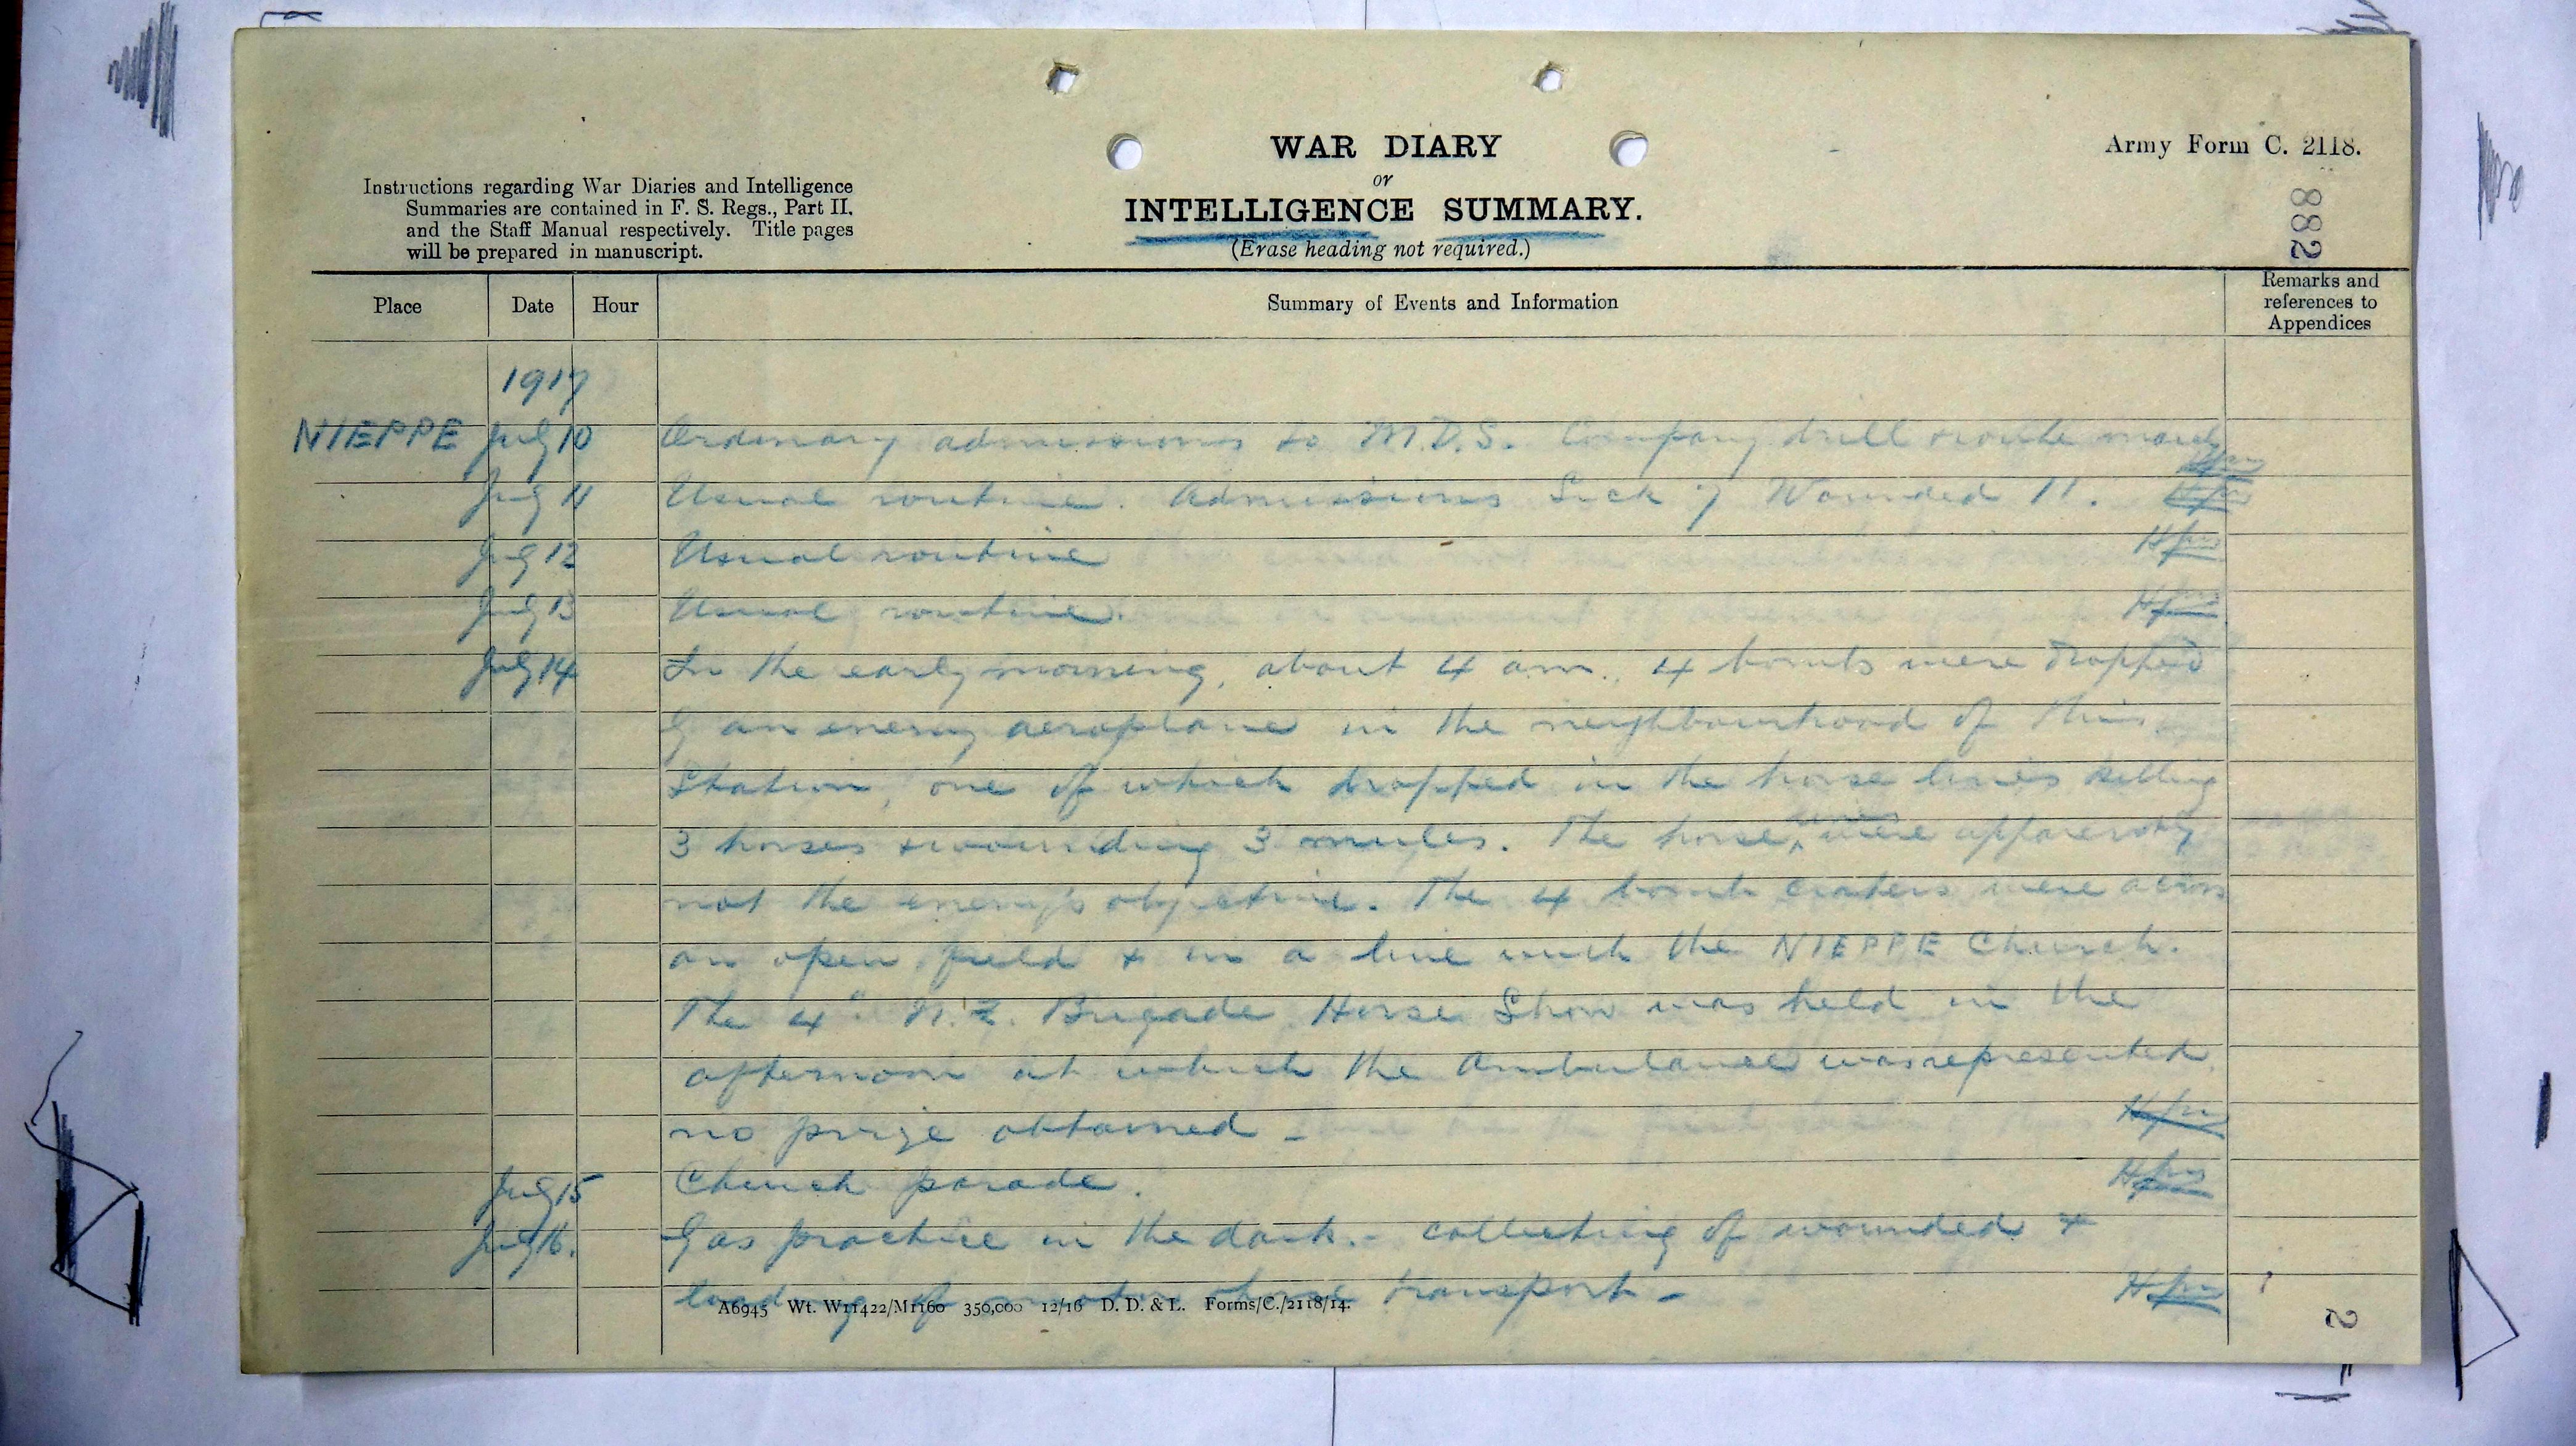 WAR DIARY
or
INTELLIGENCE SUMMARY.
(Erase heading not required.)
Army Form C. 2118.
882
Instructions regarding War Diaries and Intelligence
Summaries are contained in F. S. Regs., Part II,
and the Staff Manual respectively. Title pages
will be prepared in manuscript.
Place Date Hour Summary of Events and Information Remarks and
references to
Appendices
1917
NIEPPE July 10 Ordinary admissions to M.D.S. Company drill route march
July 11 Usual routine. Admissions Sick 7 Wounded 11.
July 12 Usual routine
July 13 Usual routine.
July 14 In the early morning, about 4 am., 4 bombs were dropped
by an enemy aeroplane in the neighbourhood of this
Station, one of which dropped in the horse lines killing
3 horses & wounding 3 mules. The horse were apparently
not the enemy's objective. The 4 bomb craters were across
an open field & in a line with the NIEPPE Church.
The 4" N.Z. Brigade Horse Show was held in the
afternoon at which the Ambulance was represented.
no prize obtained -
July 15 Church parade.
July 16. Gas practice in the dark. - collecting of wounded &
loading of motor & horse transport -
A6945 Wt. W11422/M1160 350,000 12/16 D. D. & L. Forms/C./2118/14.
2